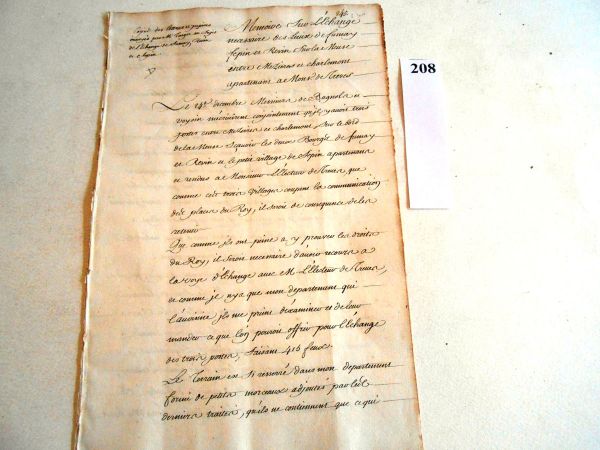 242
208
Copie des
de l'Echange de fumay, Revin
et fepin
Memoire Sur L'Echange
necessaire des Lieux de fumay
fepin et Revin Sur la Meuse
entre Mezieres et charlemont
apartenans a Monsr de Treves
Le 14e decembre Messieurs de Bagnols et
voysin m'écrivirent conjointement qu'il y avoit trois
postes entre Mezieres et charlemont, Sur le bord
de la Meuse Scavoir les deux Bourgs de fumay
et Revin et le petit village de fepin apartenans
et rendus a Monsieur L'Electeur de Treves, que
comme ces trois villages coupent la communication
des places du Roy, il seroit de consequence de les
retenir
Que comme ils ont peine a y prouver les droits
du Roy, il seroit necessaire d'avoir recours a
la voye d'Echange avec M. L'Electeur de Treves,
et comme je n'ay que mon departement qui
l'avoisine ils me prient d'examiner et de leur
mander ce que l'on pouroit offrir pour l'Echange
des trois postes, faisant 416 feux.
Le Terrain est si resserré dans mon departement
formé de petits morceaux adjoutés par les
derniers traites, qu'ils ne contiennent que ce qui